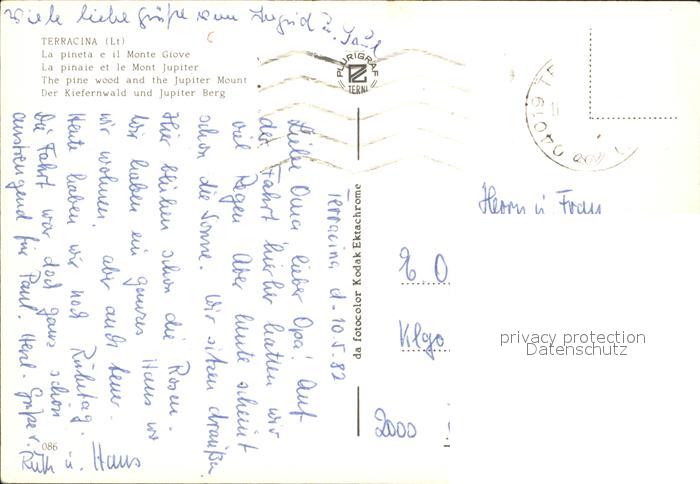 Viele liebe Grüße von Ingrid u.
TERRACINA (Lt)
La pineta e il Monte Giove
La pinaie et le Mont Jupiter
The pine wood and the Jupiter Mount
Der Kiefernwald und Jupiter Berg
PLURIGRAF
TERNI
04019 TE
Terracina d. 10.5.82
Liebe Oma lieber Opa! Auf
der Fahrt hierher hatten wir
viel Regen Aber heute scheint
schon die Sonne. Wir sitzen draußen
Hier blühen schon die Rosen.
Wir haben ein ganzes Haus wo
wir wohnen, aber auch teuer.
Heute haben wir noch Ruhetag.
Die Fahrt war doch ganz schön
anstrengend für Paul. Herzl. Grüße v.
Ruth u. Hans
086
da fotocolor Kodak Ektachrome
Herrn u Frau
E. O
Klgo
2000
privacy protection
Datenschutz